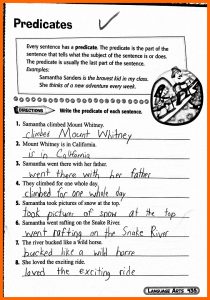 Predicates
Every sentence has a predicate. The predicate is the part of the
sentence that tells what the subject of the sentence is or does.
The predicate is usually the last part of the sentence.
Examples:
Samantha Sanders is the bravest kid in my class.
She thinks of a new adventure every week.
DIRECTIONS Write the predicate of each sentence.
1. Samantha climbed Mount Whitney.
climbed Mount Whitney
2. Mount Whitney is in California.
is in California
3. Samantha went there with her father.
went there with her father
4. They climbed for one whole day.
climbed for one whole day
5. Samantha took pictures of snow at the top.
took picturs of snow at the top
6. Samantha went rafting on the Snake River.
went rafting on the Snake River
7. The river bucked like a wild horse.
bucked like a wild horse
8. She loved the exciting ride.
loved the exciting ride
LANGUAGE ARTS